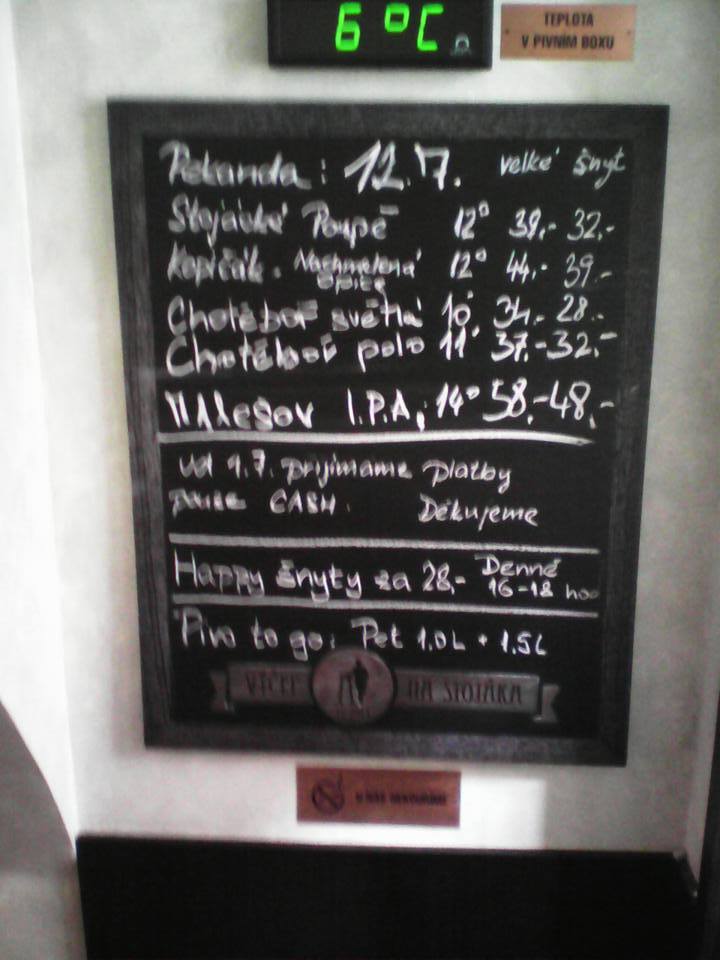 6 °C
TEPLOTA
V PIVNÍM BOXU
Pekanda: 12.7. velké šnyt
Stojácké Poupě 12° 39,- 32,-
Kopičák. Nachmelená opice 12° 44,- 39,-
Chotěboř světlá 10° 34,- 28,-
Chotěboř polo 11° 37,- 32,-
MALešov I.P.A, 14° 58,- 48,-
od 1.7. prijímame platby
pouze CASH. Děkujeme
Happy šnyty za 28,- Denně
16-18 hod
Pivo to go: Pet 1.0L + 1.5L
VÝČEP NA STOJÁKA
U NÁS NEKOUŘÍME